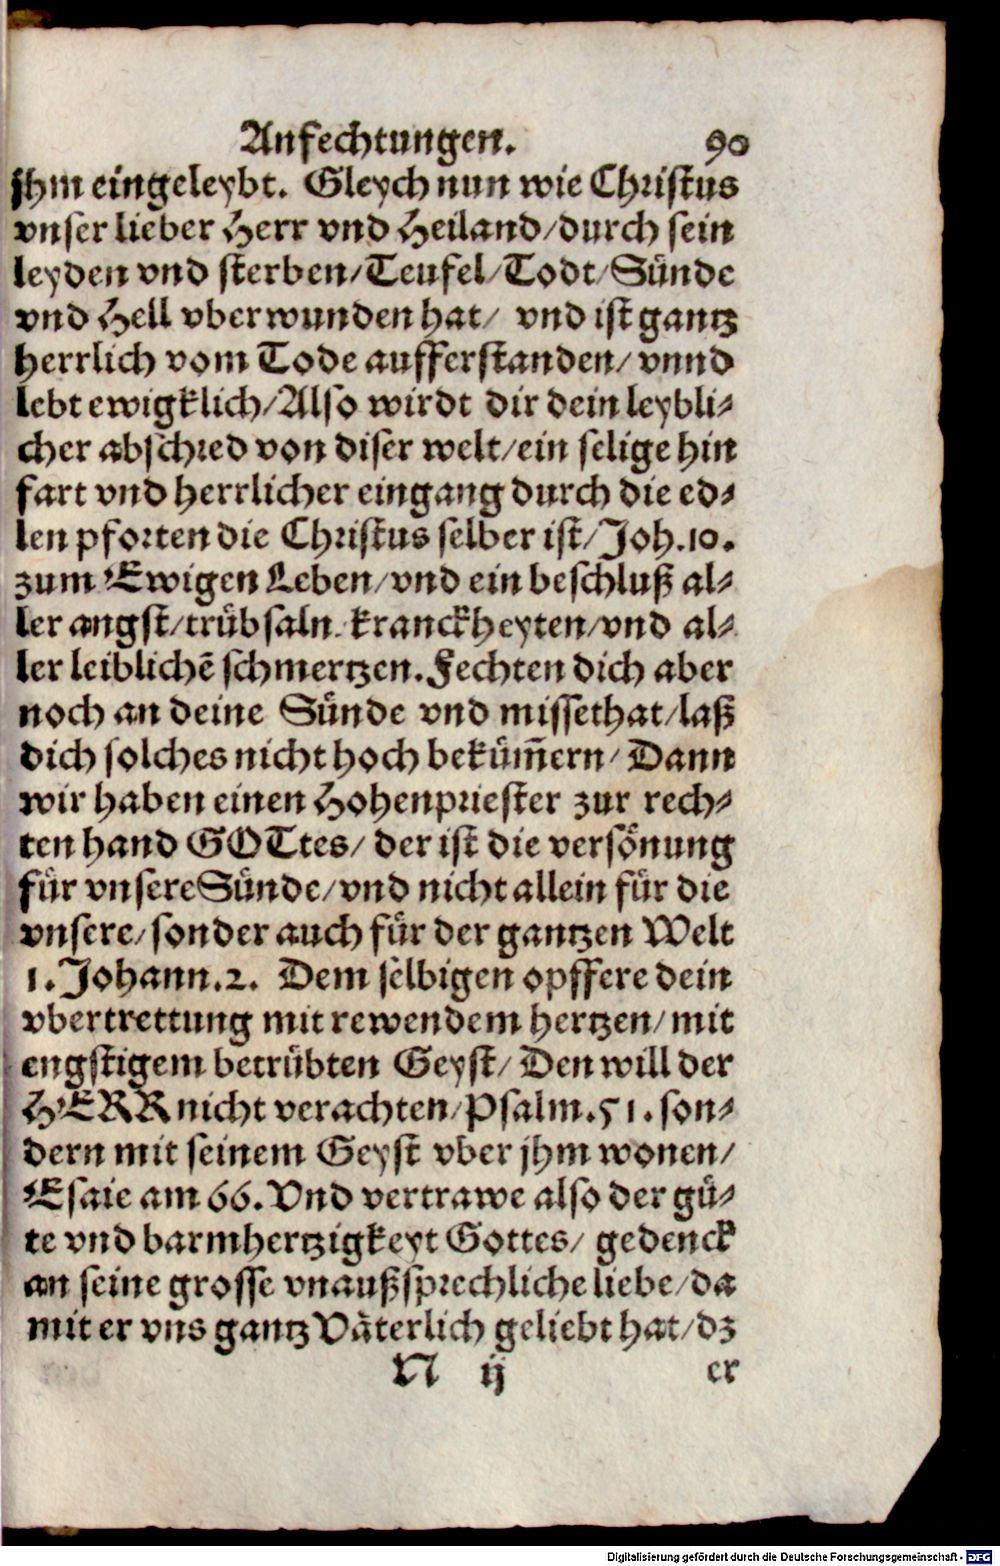 Anfechtungen. 90
jhm eingeleybt. Gleych nun wie Christus
vnser lieber Herr vnd Heiland/durch sein
leyden vnd sterben/Teufel/Todt/Sünde
vnd Hell vberwunden hat/ vnd ist gantz
herrlich vom Tode aufferstanden/ vnnd
lebt ewigklich/Also wirdt dir dein leybli-
cher abschied von diser welt/ein selige hin
fart vnd herrlicher eingang durch die ed-
len pforten die Christus selber ist/Joh.10.
zum Ewigen Leben/vnd ein beschluß al-
ler angst/trübsaln. kranckheyten/vnd al-
ler leiblichē schmertzen. Fechten dich aber
noch an deine Sünde vnd missethat/laß
dich solches nicht hoch beküm̄ern/ Dann
wir haben einen Hohenpriester zur rech-
ten hand GOTtes/ der ist die versönung
für vnsere Sünde/vnd nicht allein für die
vnsere/sonder auch für der gantzen Welt
1. Johann.2. Dem selbigen opffere dein
vbertrettung mit rewendem hertzen/mit
engstigem betrübten Geyst/ Den will der
HERR nicht verachten/Psalm.51. son-
dern mit seinem Geyst vber jhm wonen/
Esaie am 66. Vnd vertrawe also der gü-
te vnd barmhertzigkeyt Gottes/ gedenck
an seine grosse vnaußsprechliche liebe/da
mit er vns gantz Väterlich geliebt hat/dz
N ij er
Digitalisierung gefördert durch die Deutsche Forschungsgemeinschaft - DFG